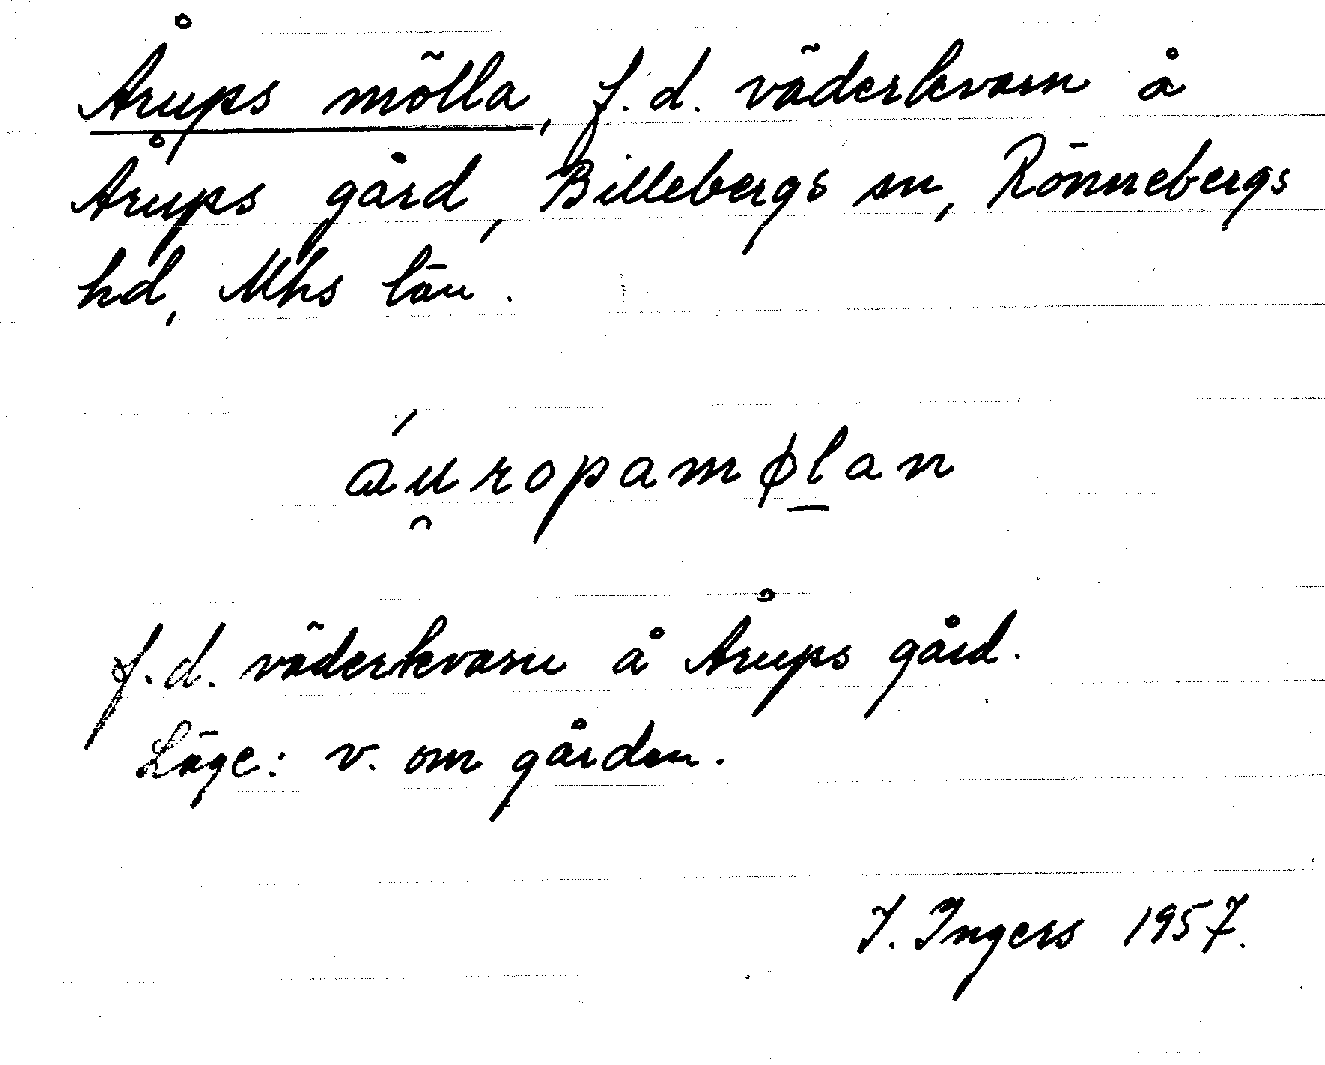 Årups mölla, f.d. väderkvarn å
Årups gård, Billebergs sn, Rönnebergs
hd, Mhs län.
áu̯ropamøl̠an
f.d. väderkvarn å Årups gård.
Läge: v. om gården.
I. Ingers 1957.